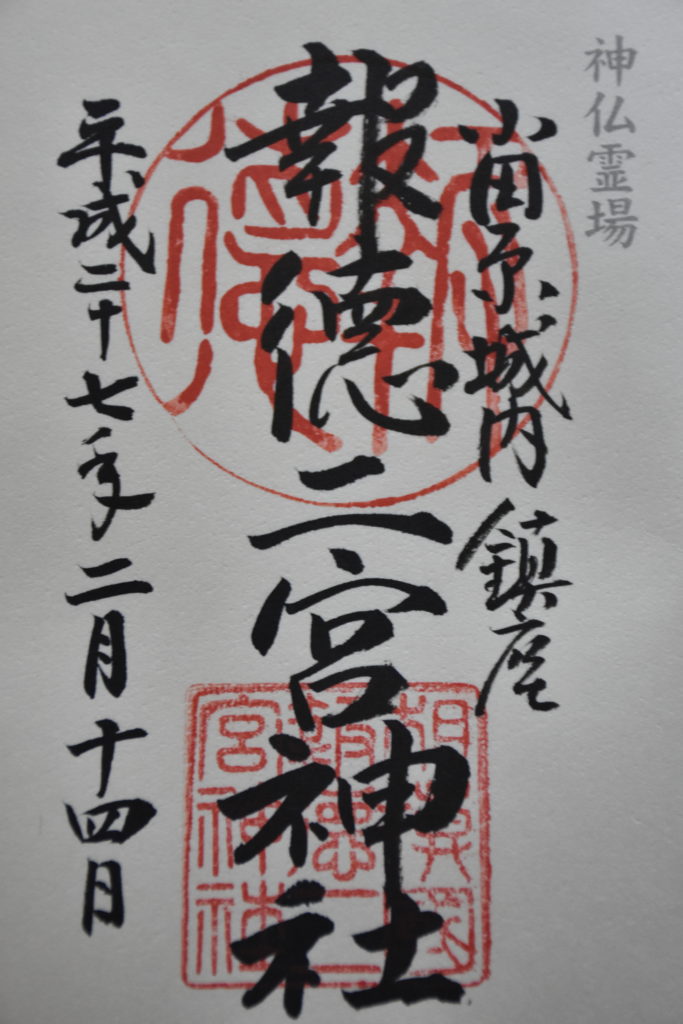 神仏霊場
小田原城内 鎮座
報徳二宮神社
平成二十七年二月十四日
相模國
報徳二
宮神社